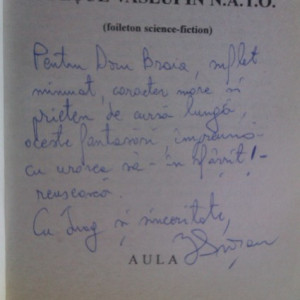 VASLUI IN N.A.T.O.
(foileton science-fiction)
Pentru Dom Braia, suflet
minunat, caracter mare și
prieten de cursă lungă,
aceste fantasări, împreună
cu urarea să - în sfârșit! -
reușească.
Cu drag și sinceritate,
AULA